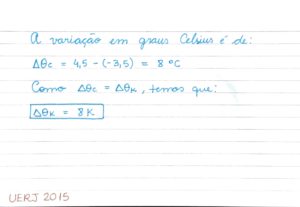 A variação em graus Celsius é de:
Δθc = 4,5 - (-3,5) = 8 °C
Como Δθc = Δθk, temos que:
Δθk = 8 K.
UERJ 2015